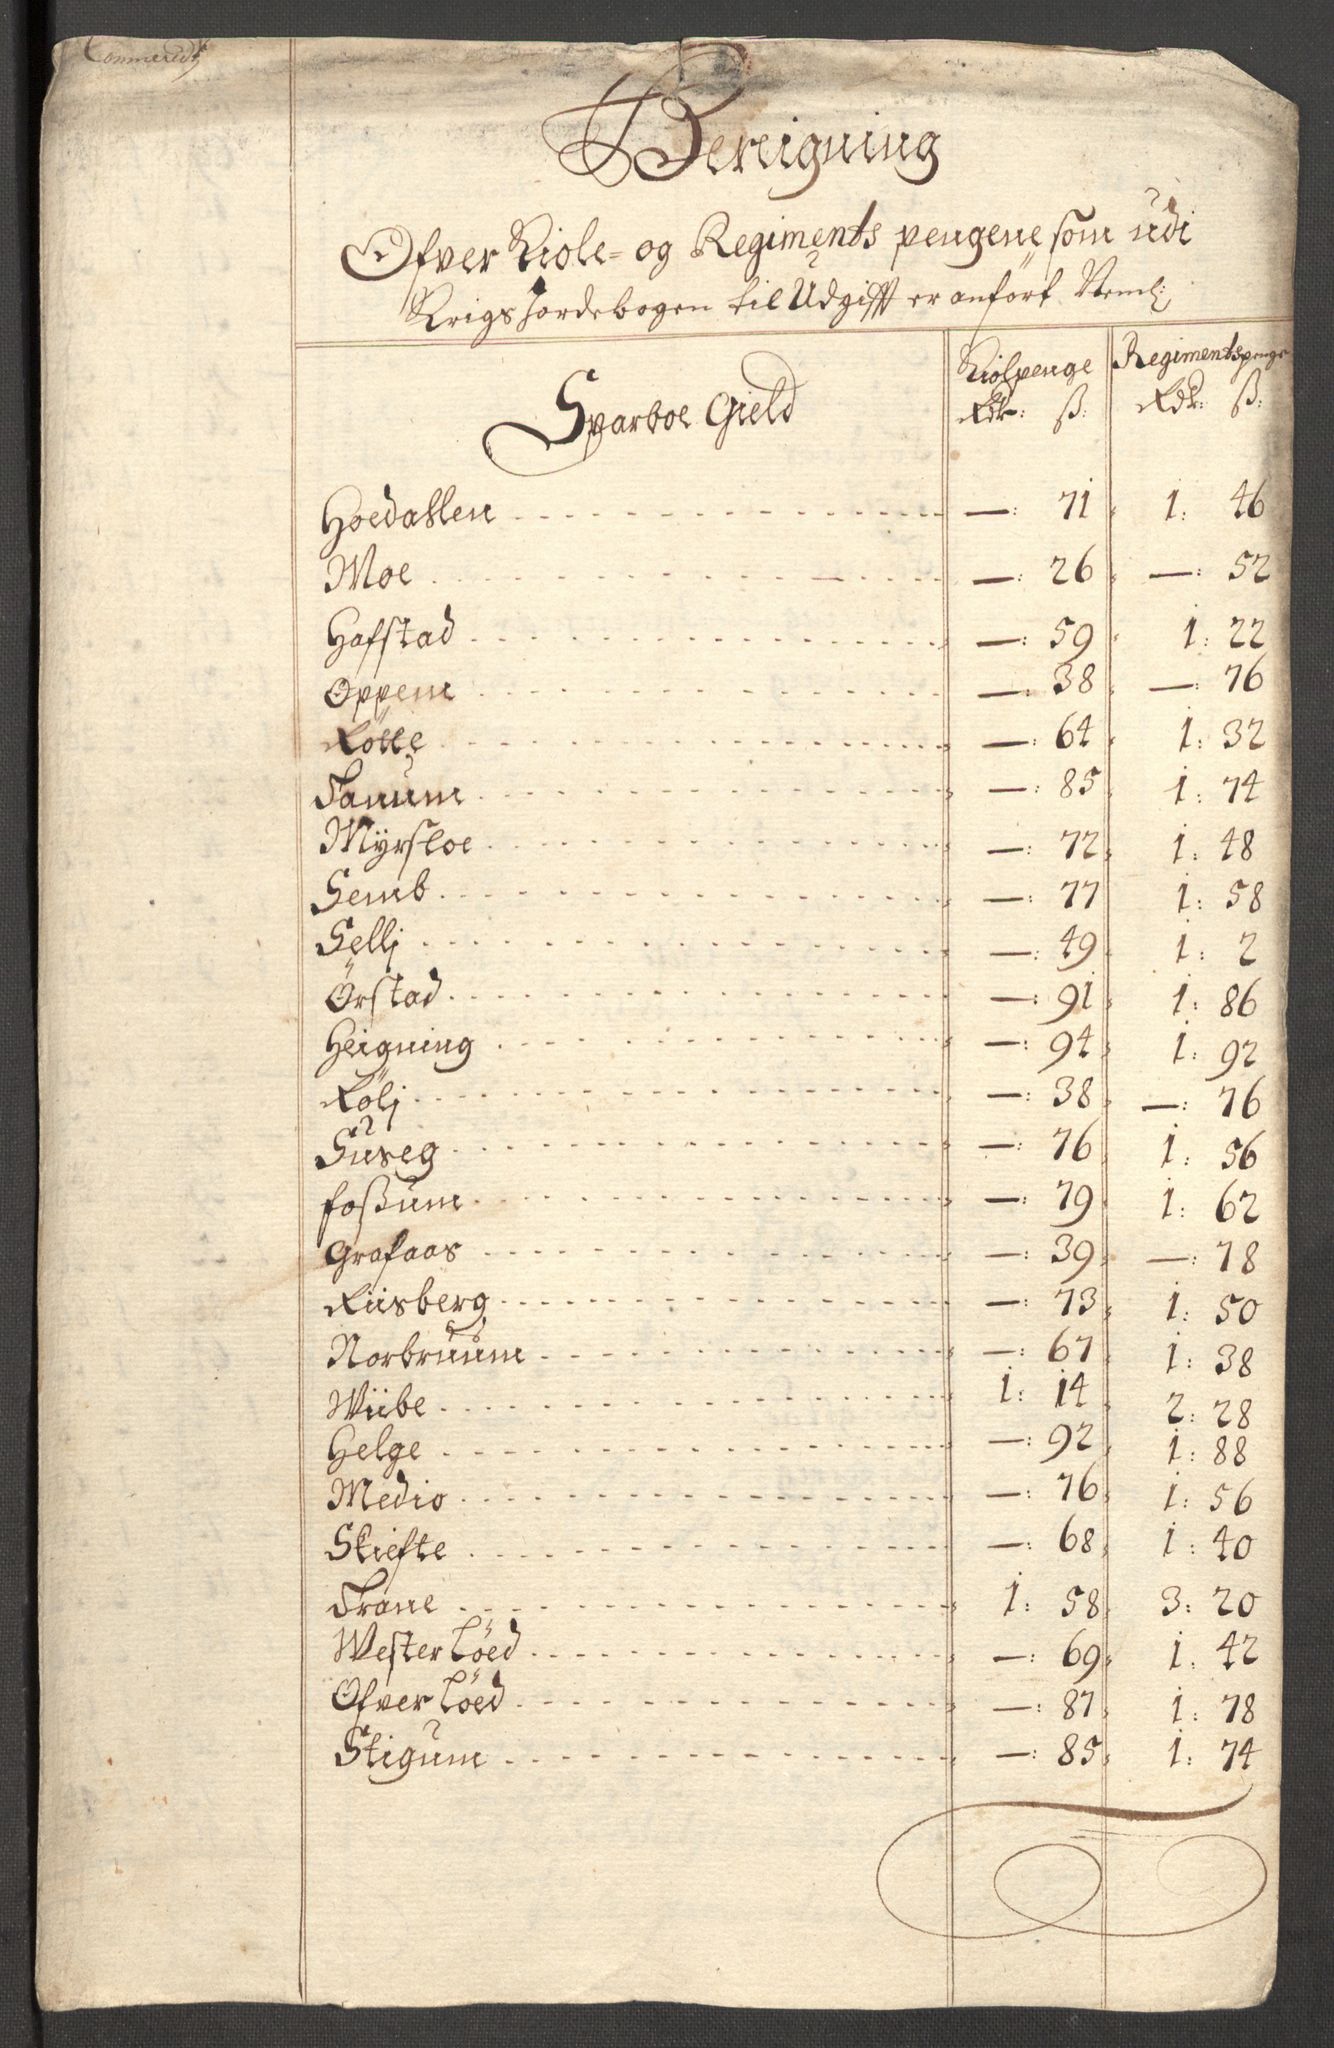 Bereigning
Ofver Kiole- og Regiments pengene som udi
Krigs Jordebogen til Udgifft er anfört Neml:
Sparboe Gield Kiolpenge Regimentspenge
Rdr: ß: Rdr: ß:
Hoedahlen —: 71 1: 46
Moe —: 26 —: 52
Hafstad —: 59 1: 22
Oppem —: 38 —: 76
Rölle —: 64 1: 32
Tanum —: 85 1: 74
Myrsloe —: 72 1: 48
Semb —: 77 1: 58
Sellj —: 49 1: 2
Örstad —: 91 1: 86
Heigning —: 94 1: 92
Rölj —: 38 —: 76
Suseg —: 76 1: 56
Foßum —: 79 1: 62
Grafaas —: 39 —: 78
Riisberg —: 73 1: 50
Norbruum —: 67 1: 38
Wiibe 1: 14 2: 28
Helge —: 92 1: 88
Medio —: 76 1: 56
Skiefte —: 68 1: 40
Trane 1: 58 3: 20
Wester Löed —: 69 1: 42
Ofver Löed —: 87 1: 78
Stigum —: 85 1: 74